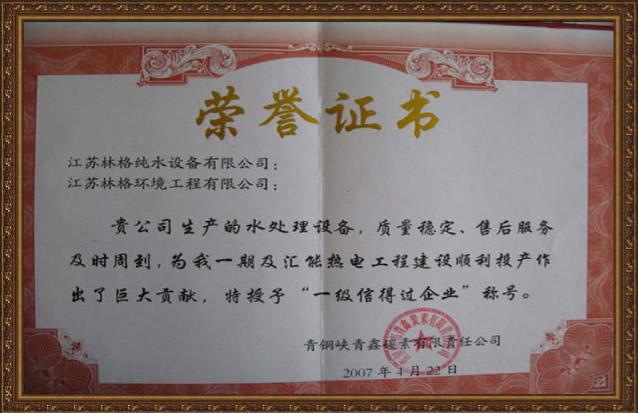 荣誉证书
江苏林格纯水设备有限公司；
江苏林格环境工程有限公司；
贵公司生产的水处理设备，质量稳定、售后服务
及时周到，为我一期及汇能热电工程建设顺利投产作
出了巨大贡献，特授予“一级信得过企业”称号。
青铜峡青鑫碳素有限责任公司
2007年4月22日